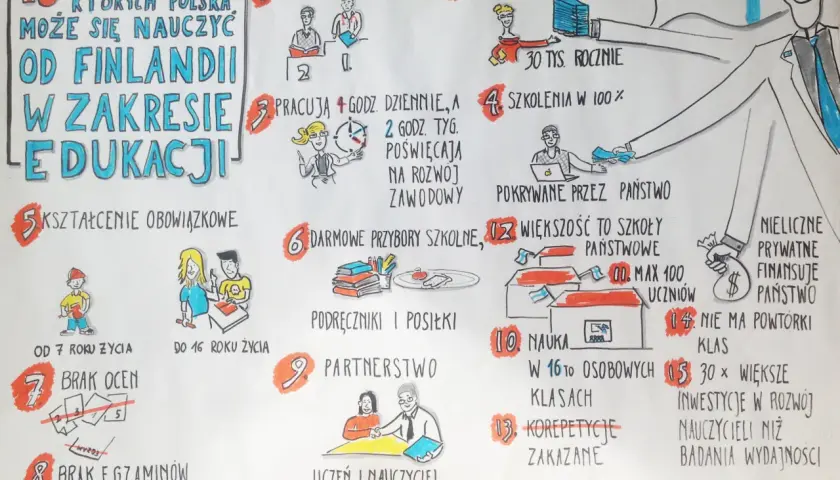 KTÓRYCH POLSKA
MOŻE SIĘ NAUCZYĆ
OD FINLANDII
W ZAKRESIE
EDUKACJI
2
30 TYS. ROCZNIE
3. PRACUJĄ 4 GODZ. DZIENNIE, A
2 GODZ. TYG.
POŚWIĘCAJĄ
NA ROZWÓJ
ZAWODOWY
4. SZKOLENIA W 100%
POKRYWANE PRZEZ PAŃSTWO
5 KSZTAŁCENIE OBOWIĄZKOWE
OD 7 ROKU ŻYCIA
DO 16 ROKU ŻYCIA
6. DARMOWE PRZYBORY SZKOLNE,
PODRĘCZNIKI I POSIŁKI
12 WIĘKSZOŚĆ TO SZKOŁY
PAŃSTWOWE
11. MAX 100
UCZNIÓW
NIELICZNE
PRYWATNE
FINANSUJE
PAŃSTWO
$
7 BRAK OCEN
5
8 BRAK EGZAMINÓW
9. PARTNERSTWO
UCZEŃ I NAUCZYCIEL
10. NAUKA
W 16TO OSOBOWYCH
KLASACH
13. KOREPETYCJE
ZAKAZANE
14. NIE MA POWTÓRKI
KLAS
15 30 X WIĘKSZE
INWESTYCJE W ROZWÓJ
NAUCZYCIELI NIŻ
BADANIA WYDAJNOŚCI